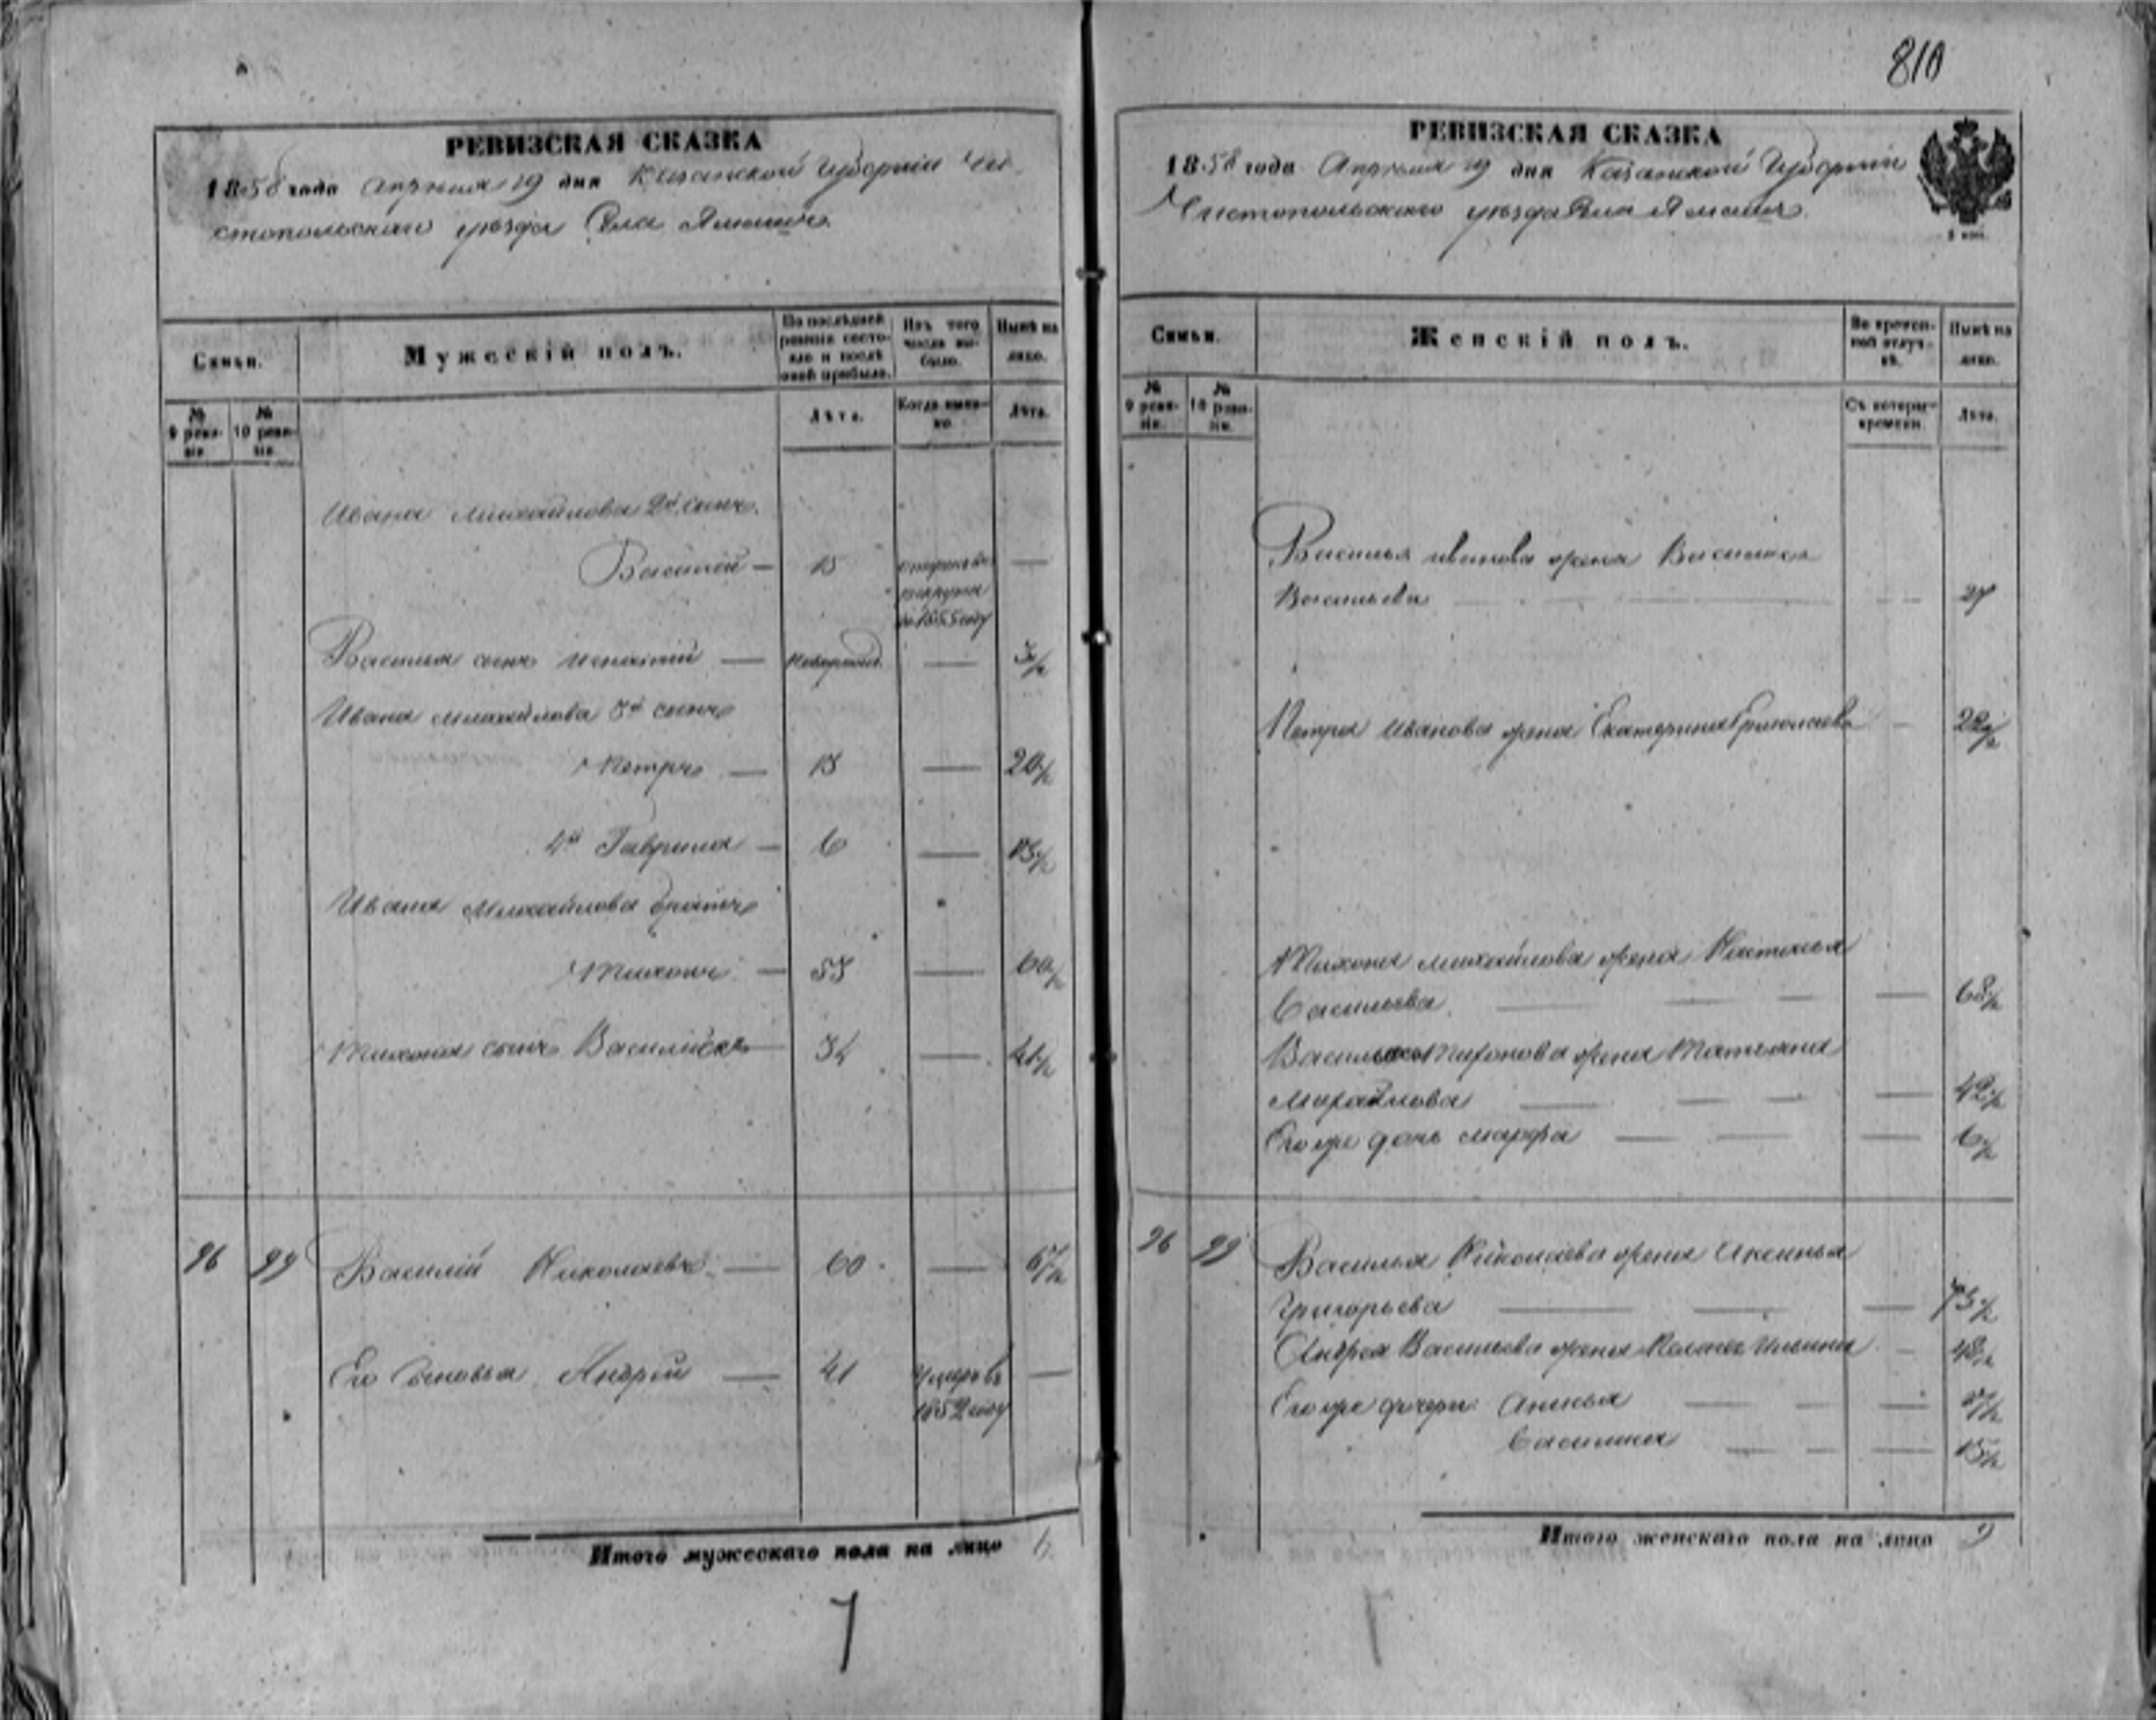 810
РЕВИЗСКАЯ СКАЗКА
1858 года Апреля 19 дня Казанской Губернии Чи-
стопольскаго уезда Села
Семьи.
Мужескій полъ.
По последней ревизіи состояло и после оной прибыло.
Изъ того числа выбыло.
Ныне на лицо.
№ 9 ревизіи.
№ 10 ревизіи.
Лета.
Когда именно.
Лета.
Ивана Михайлова 2й сынъ
Василій — 15
въ рекруты
въ 1855 году —
Василья сынъ — новорожд. —
Ивана Михайлова 3й сынъ
Петръ — 13 — 20½
4й Гаврила — 6 — 13½
Ивана Михайлова братъ
Тихонъ — 53 — 60½
Тихона сынъ — 34 — 41½
96 99 Василій Николаевъ — 60 — 67½
Его Сыновья Андрей — 41 умеръ въ —
1852 году
Итого мужескаго пола на лицо 6
7
РЕВИЗСКАЯ СКАЗКА
1858 года Апреля 19 дня Казанской Губерніи
Чистопольскаго уезда Села
Семьи.
Женскій полъ.
Во временной отлучке.
Ныне на лицо.
№ 9 ревизіи.
№ 10 ревизіи.
Съ котораго времени.
Лета.
Василья Иванова жена
Васильева — 27
Петра Иванова жена Екатерина — 22½
Тихона Михайлова жена Настасья
Васильева —
Тихонова жена Татьяна
Михайлова — 42½
Его же дочь Марфа — 6½
96 99 Василья Николаева жена Аксинья
Григорьева — 73½
Андрея Васильева жена —
Его же дочери
15½
Итого женскаго пола на лицо 9